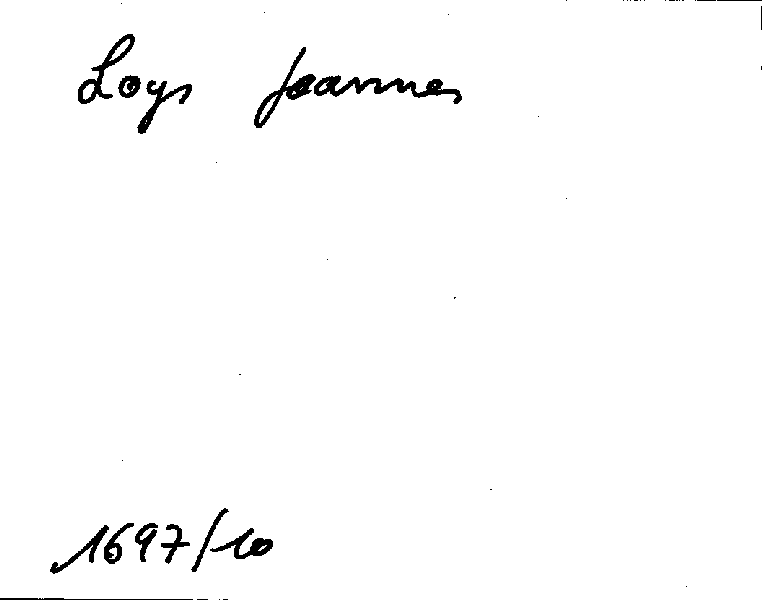 Loys Joannes
1697/10